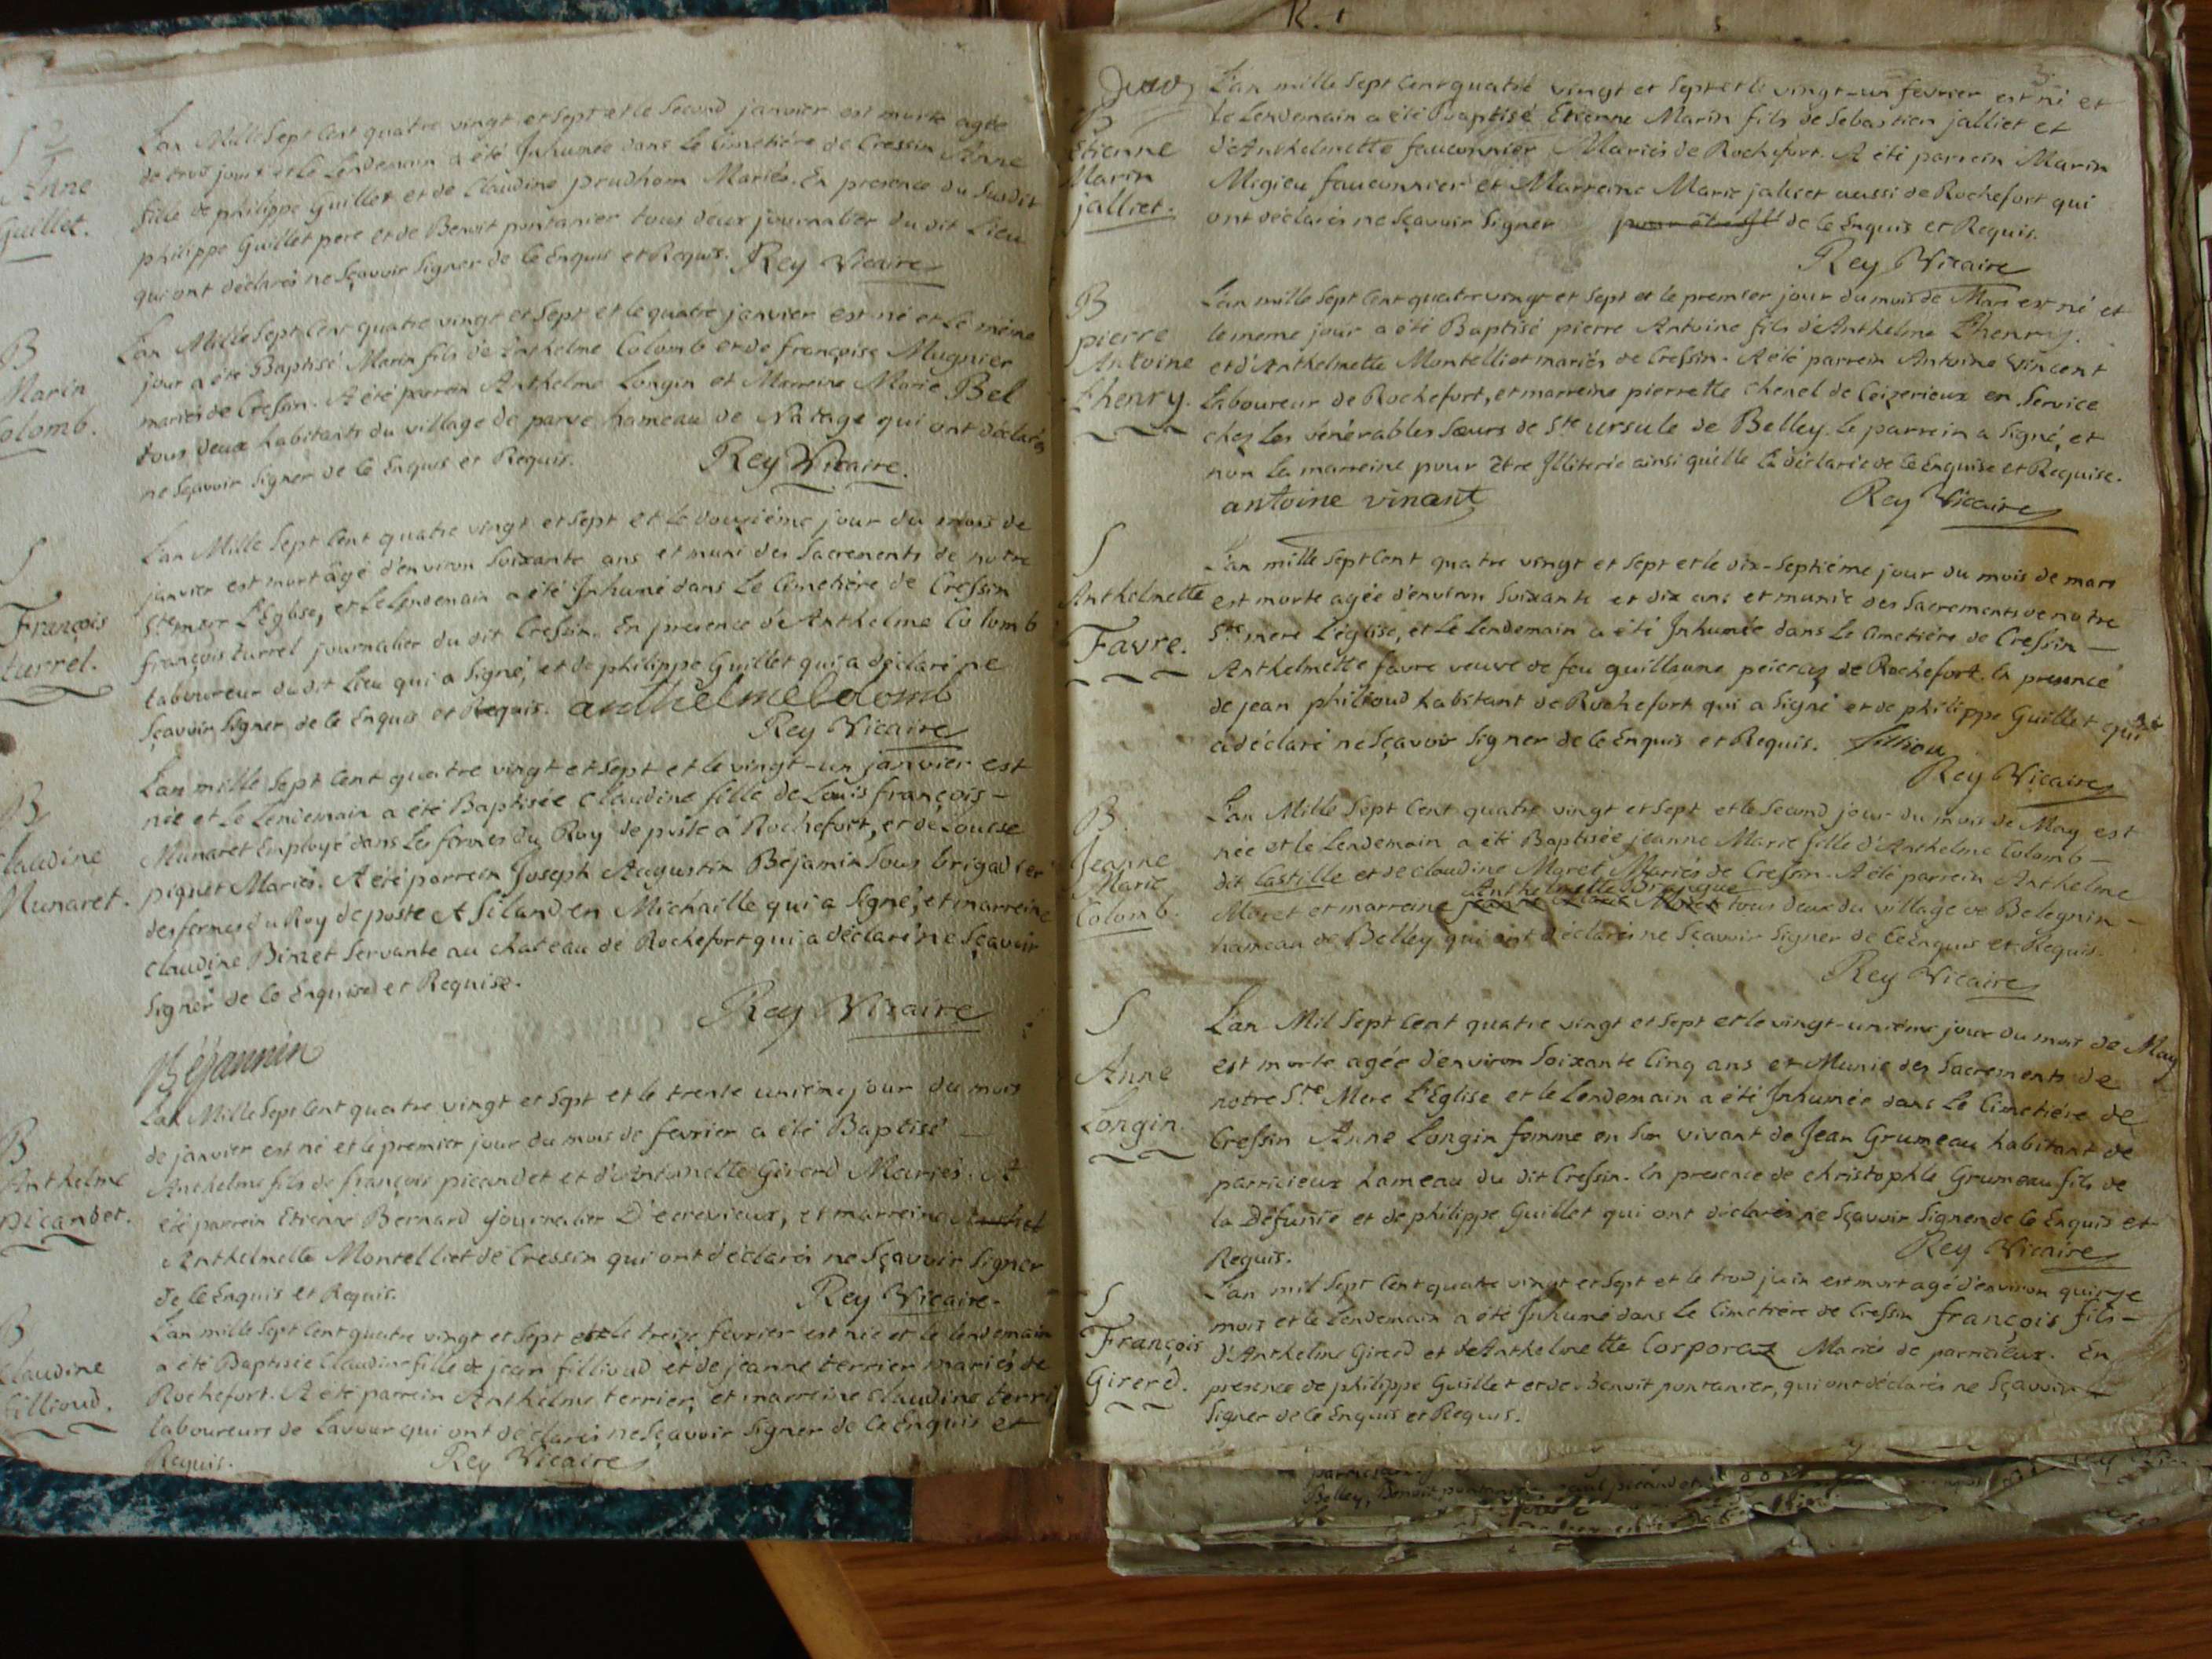 S
Anne
Guillet.
L'an Mille Sept Cent quatre vingt et Sept et le Second janvier est morte agée
de trois jours et le Lendemain a été Inhumée dans le Cimetiére de Cressin Anne
fille de philippe Guillet et de Claudine prudhom Mariés. En presence du Susdit
philippe Guillet pere et de Benoit pontanier tous deux journalier du dit Lieu
qui ont déclarés ne Sçavoir Signer de Ce Enquis et Requis. Rey Vicaire
B
Marin
Colomb.
L'an Mille Sept Cent quatre vingt et Sept et le quatre janvier est né et Le même
jour a été Baptisé Marin fils de Anthelme Colomb et de françoise Mugnier
mariés de Cressin. A été parrein Anthelme Longin et Marreine Marie Bel
tous deux habitants du village de parve hameau de Natage qui ont déclarés
ne Sçavoir Signer de Ce Enquis et Requis. Rey Vicaire.
S
François
turrel.
L'an Mille Sept Cent quatre vingt et Sept et Le douziéme jour du mois de
janvier est mort âgé d'environ Soixante ans et muni des Sacrements de notre
Ste mere L'Eglise, et Le Lendemain a été Inhumé dans Le Cimetiére de Cressin
françois turrel journalier du dit Cressin. En presence d'Anthelme Colomb
laboureur du dit Lieu qui a Signé, et de philippe Guillet qui a déclaré ne
Sçavoir Signer de Ce Enquis et Requis. anthelme Colomb
Rey Vicaire
B
Claudine
Munaret.
L'an mille Sept Cent quatre vingt et Sept et le vingt-un janvier est
née et Le Lendemain a été Baptisée Claudine fille de Louis françois -
Munaret Employé dans Les fermes du Roy de poste à Rochefort, et de Louise
piquet Mariés. A été parrein Joseph Augustin Béjamin Sous brigadier
des fermes du Roy de poste A Siland en Michaille qui a Signé, et marreine
Claudine Binet Servante au chateau de Rochefort qui a déclaré ne Sçavoir
Signer de Ce Enquise et Requise.
Rey Vicaire
Béjannin
B
Anthelme
picandet.
L'an Mille Sept Cent quatre vingt et Sept et le trente uniéme jour du mois
de janvier est né et le premier jour du mois de fevrier a été Baptisé
Anthelme fils de françois picandet et d'Antoinette Girerd Mariés. A
été parrein Etienne Bernard journalier D'ecrevieux, et marreine
Anthelmette Montelliet de Cressin qui ont déclarés ne Sçavoir Signer
de Ce Enquis et Requis. Rey Vicaire.
B
Claudine
fillioud.
L'an mille Sept Cent quatre vingt et Sept et le treize fevrier est née et le lendemain
a été Baptisée Claudine fille de jean fillioud et de jeanne terrier mariés de
Rochefort. A été parrein Anthelme terrier, et marreine Claudine
laboureurs de Lavour qui ont déclarés ne Sçavoir Signer de Ce Enquis et
Requis. Rey Vicaire
B
Etienne
Marin
jalliet.
L'an mille Sept Cent quatre vingt et Sept et le vingt-un fevrier est né et
le Lendemain a été Baptisé Etienne Marin fils de Sebastien jalliet et
d'Anthelmette fauconnier Mariés de Rochefort. A été parrein Marin
Migieu fauconnier et Marreine Marie jalliet aussi de Rochefort qui
ont déclarés ne Sçavoir Signer de Ce Enquis et Requis.
Rey Vicaire
B
pierre
Antoine
Lhenry.
L'an mille Sept Cent quatre vingt et Sept et le premier jour du mois de Mars est né et
le meme jour a été Baptisé pierre Antoine fils d'Anthelme Lhenry.
et d'Anthelmette Montelliet mariés de Cressin. A été parrein Antoine Vincent
Laboureur de Rochefort, et marreine pierrette Chenel de Ceizerieux en Service
chez Les vénérables Sœurs de Ste ursule de Belley. le parrein a Signé, et
non La marreine pour être Illiterée ainsi qu'elle l'a déclarée de Ce Enquise et Requise.
antoine vinant Rey Vicaire
S
Anthelmette
Favre.
L'an mille Sept Cent quatre vingt et Sept et le dix-Septiéme jour du mois de mars
est morte agée d'environ Soixante et dix ans et munie des Sacrements de notre
Ste mere L'église, et Le Lendemain a été Inhumée dans Le Cimetiére de Cressin -
Anthelmette favre veuve de feu guillaume de Rochefort. En presence
de jean philioud habitant de Rochefort qui a Signé et de philippe Guillet qui
a déclaré ne Sçavoir Signer de Ce Enquis et Requis. filliou
Rey Vicaire
B.
Jeanne
Marie
Colomb.
L'an Mille Sept Cent quatre vingt et Sept et le Second jour du mois de May est
née et le Lendemain a été Baptisée jeanne Marie fille d'Anthelme Colomb -
dit Castille et de claudine Maret Mariés de Cressin. A été parrein Anthelme
Anthelmette
Moret et marreine tous deux du village de Belegnin -
hameau de Belley qui ont déclarés ne Sçavoir Signer de Ce Enquis et Requis.
Rey Vicaire
S
Anne
Longin.
L'an Mil Sept Cent quatre vingt et Sept et le vingt-uniéme jour du mois de May
est morte agée d'environ Soixante Cinq ans et Munie des Sacrements de
notre Ste Mere L'Eglise et le Lendemain a été Inhumée dans Le Cimetiére de
Cressin Anne Longin femme en Son vivant de Jean Grumeau habitant de
parricieux hameau du dit Cressin. En presence de christophle Grumeau fils de
la Défunte et de philippe Guillet qui ont déclarés ne Sçavoir Signer de Ce Enquis et
Requis. Rey Vicaire
S
François
Girerd.
L'an mil Sept Cent quatre vingt et Sept et le trois juin est mort agé d'environ quinze
mois et le Lendemain a été Inhumé dans Le Cimetiére de Cressin françois fils -
d'Anthelme Girerd et de Anthelmette Corporaz Mariés de parricieux. En
presence de philippe Guillet et de Benoit pontanier, qui ont déclarés ne Sçavoir
Signer de Ce Enquis et Requis.